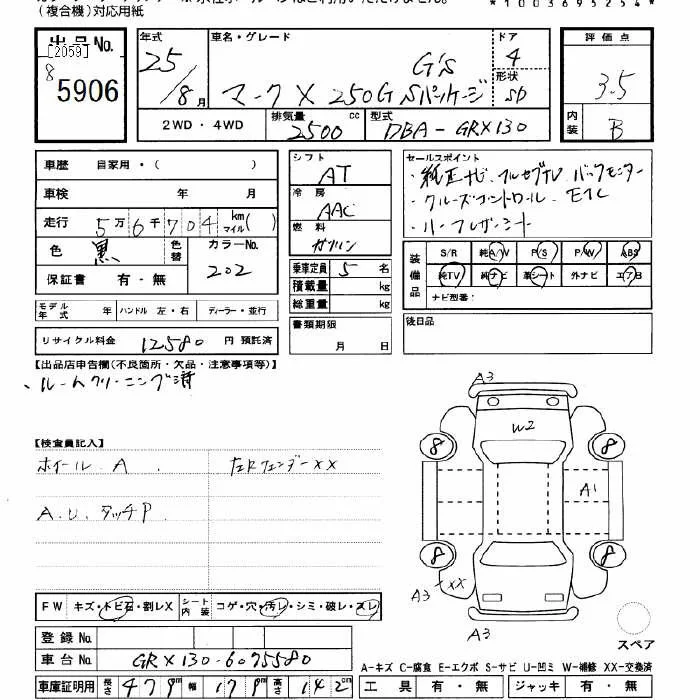 (複合機)対応用紙
*1003695254*
出品No.
[2059]
8
5906
年式
25/8月
車名・グレード
G's
マークX 250G Sパッケージ
ドア
4
形状
SD
評価点
3.5
内装
B
2WD・4WD
排気量
2500 cc
型式
DBA-GRX130
車歴 自家用・( )
車検 年 月
走行 5万6千704 km マイル( )
色 黒 色替
カラーNo.
202
保証書 有・無
モデル年式 年 ハンドル 左・右 ディーラー・並行
リサイクル料金 12580 円 預託済
シフト
AT
冷房
AAC
燃料
ガソリン
乗車定員 5 名
積載量 kg
総重量 kg
書類期限
月 日
セールスポイント
・純正ナビ、フルセグTV、バックモニター
・クルーズコントロール、ETC
・ハーフレザーシート
装備品
S/R 純A/W P/S P/W ABS
純TV 純ナビ 革シート 外ナビ エアB
ナビ型番:
後日品
【出品店申告欄(不良箇所・欠品・注意事項等)】
、ルームクリーニング済
【検査員記入】
ホイール A 、 左Rフェンダーxx
A.U.タッチP
FW キズ・トビ石・割レX シート内装 コゲ・穴・汚レ・シミ・破レ・スレ
登録No.
車台No. GRX130-6075580
車庫証明用 長さ 479 cm 幅 179 cm 高さ 142 cm
A3
W2
8
8
A1
8
8
A3-xx
A3
A3
スペア
A-キズ C-腐食 E-エクボ S-サビ U-凹ミ W-補修 XX-交換済
工具 有・無 ジャッキ 有・無